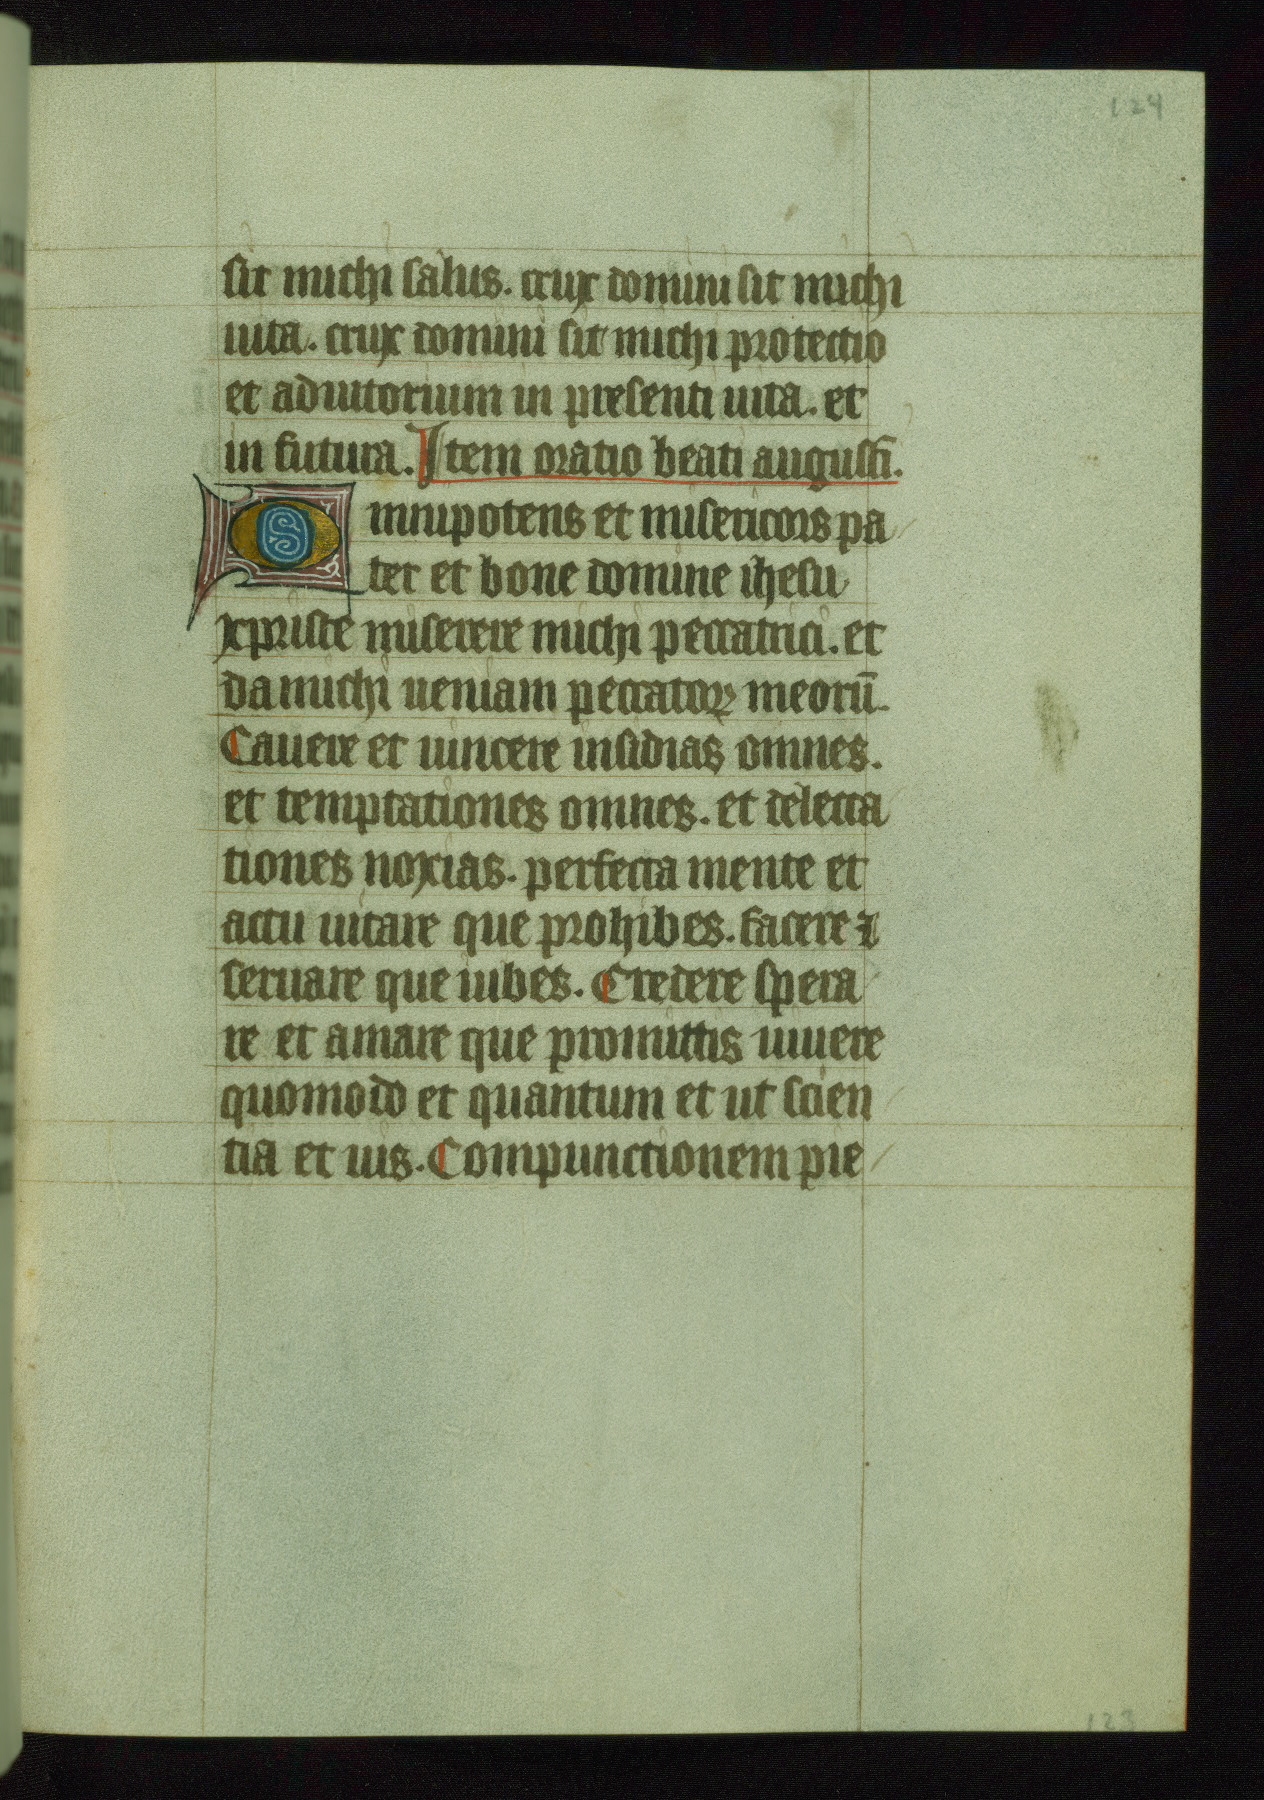 124
sit michi salus. crux domini sit michi
uita. crux domini sit michi protectio
et adiutorium in presenti uita. et
in futura. Item oratio beati augusti.
Omnipotens et misericors pa
ter et bone domine ihesu
xpriste miserere michi peccatrici. et
da michi ueniam peccatoꝝ meorū.
Cauere et uincere insidias omnes.
et temptationes omnes. et delecta
tiones noxias. perfecta mente et
actu uitare que prohibes. facere ⁊
seruare que iubes. Credere spera
re et amare que promittis uiuere
quomodo et quantum et ut scien
tia et uis. Compunctionem pie
123